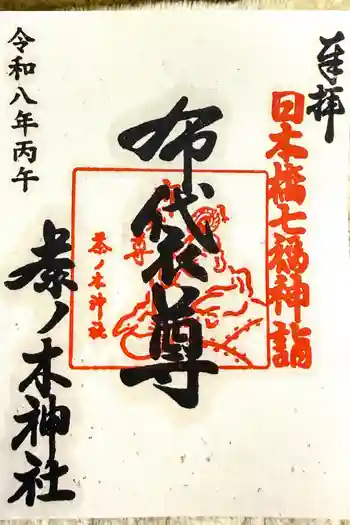 奉拝
日本橋七福神詣
布袋尊
尊
茶ノ木神社
茶ノ木神社
令和八年丙午